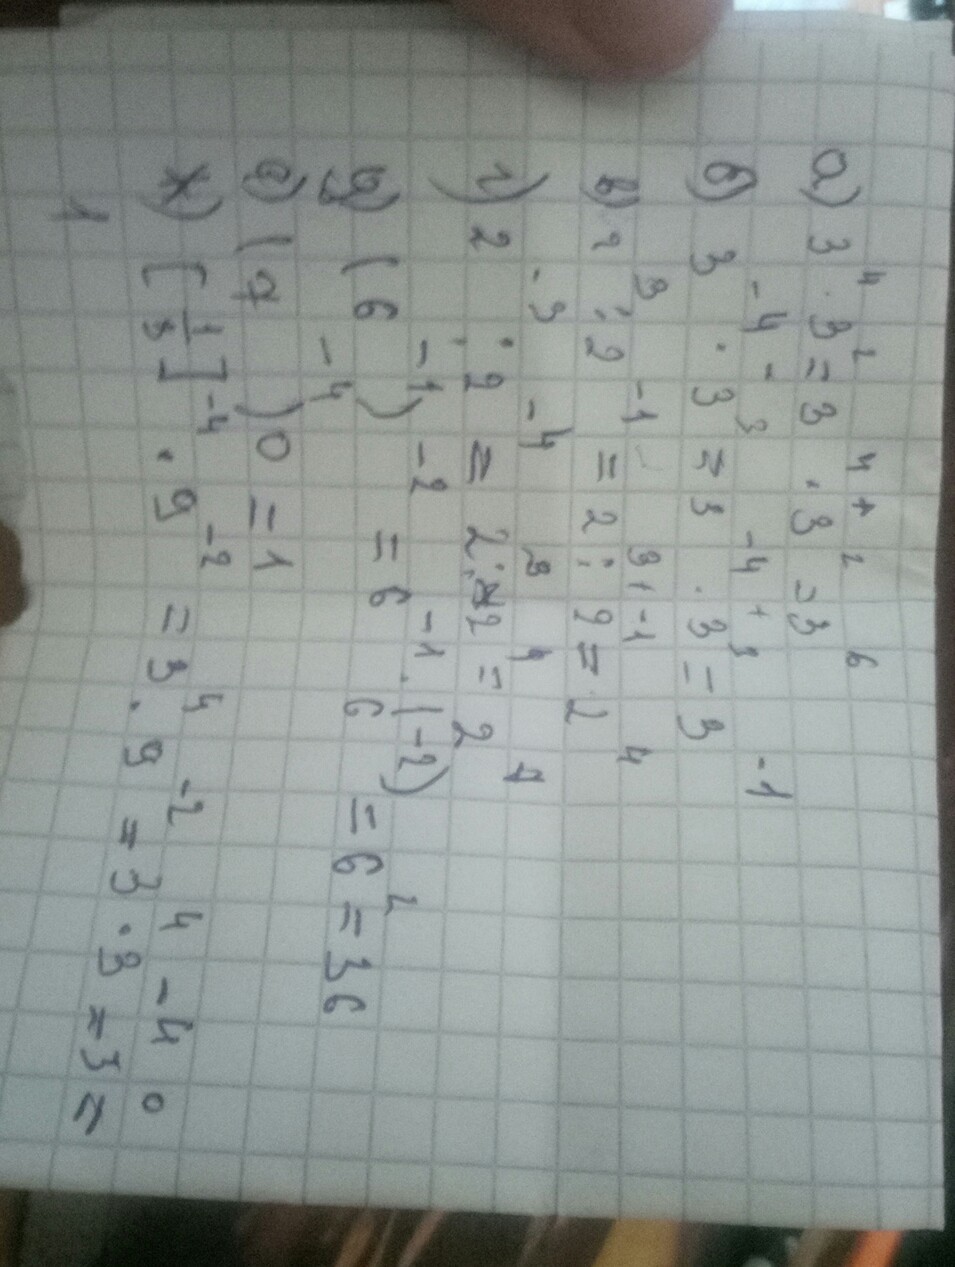 а) 3⁴ · 3² = 3 · 3⁴⁺² = 3⁶
б) 3⁻⁴ · 3³ = 3⁻⁴ · 3⁺³ = 3⁻¹
в) 2³ : 2⁻¹ = 2³⁺ : 2⁻¹ = 2⁴
г) 2⁻³ : 2⁻⁴ = 2³ : 2⁴ = 2
д) (6⁻¹)⁻² = 6⁻¹ · 6⁽⁻²⁾ = 6² = 36
е) (7⁻⁴)⁰ = 1
ж) [1/3]⁻⁴ · 9⁻² = 3⁴ · 9⁻² = 3⁴ · 3⁻⁴ = 3⁰ =
1